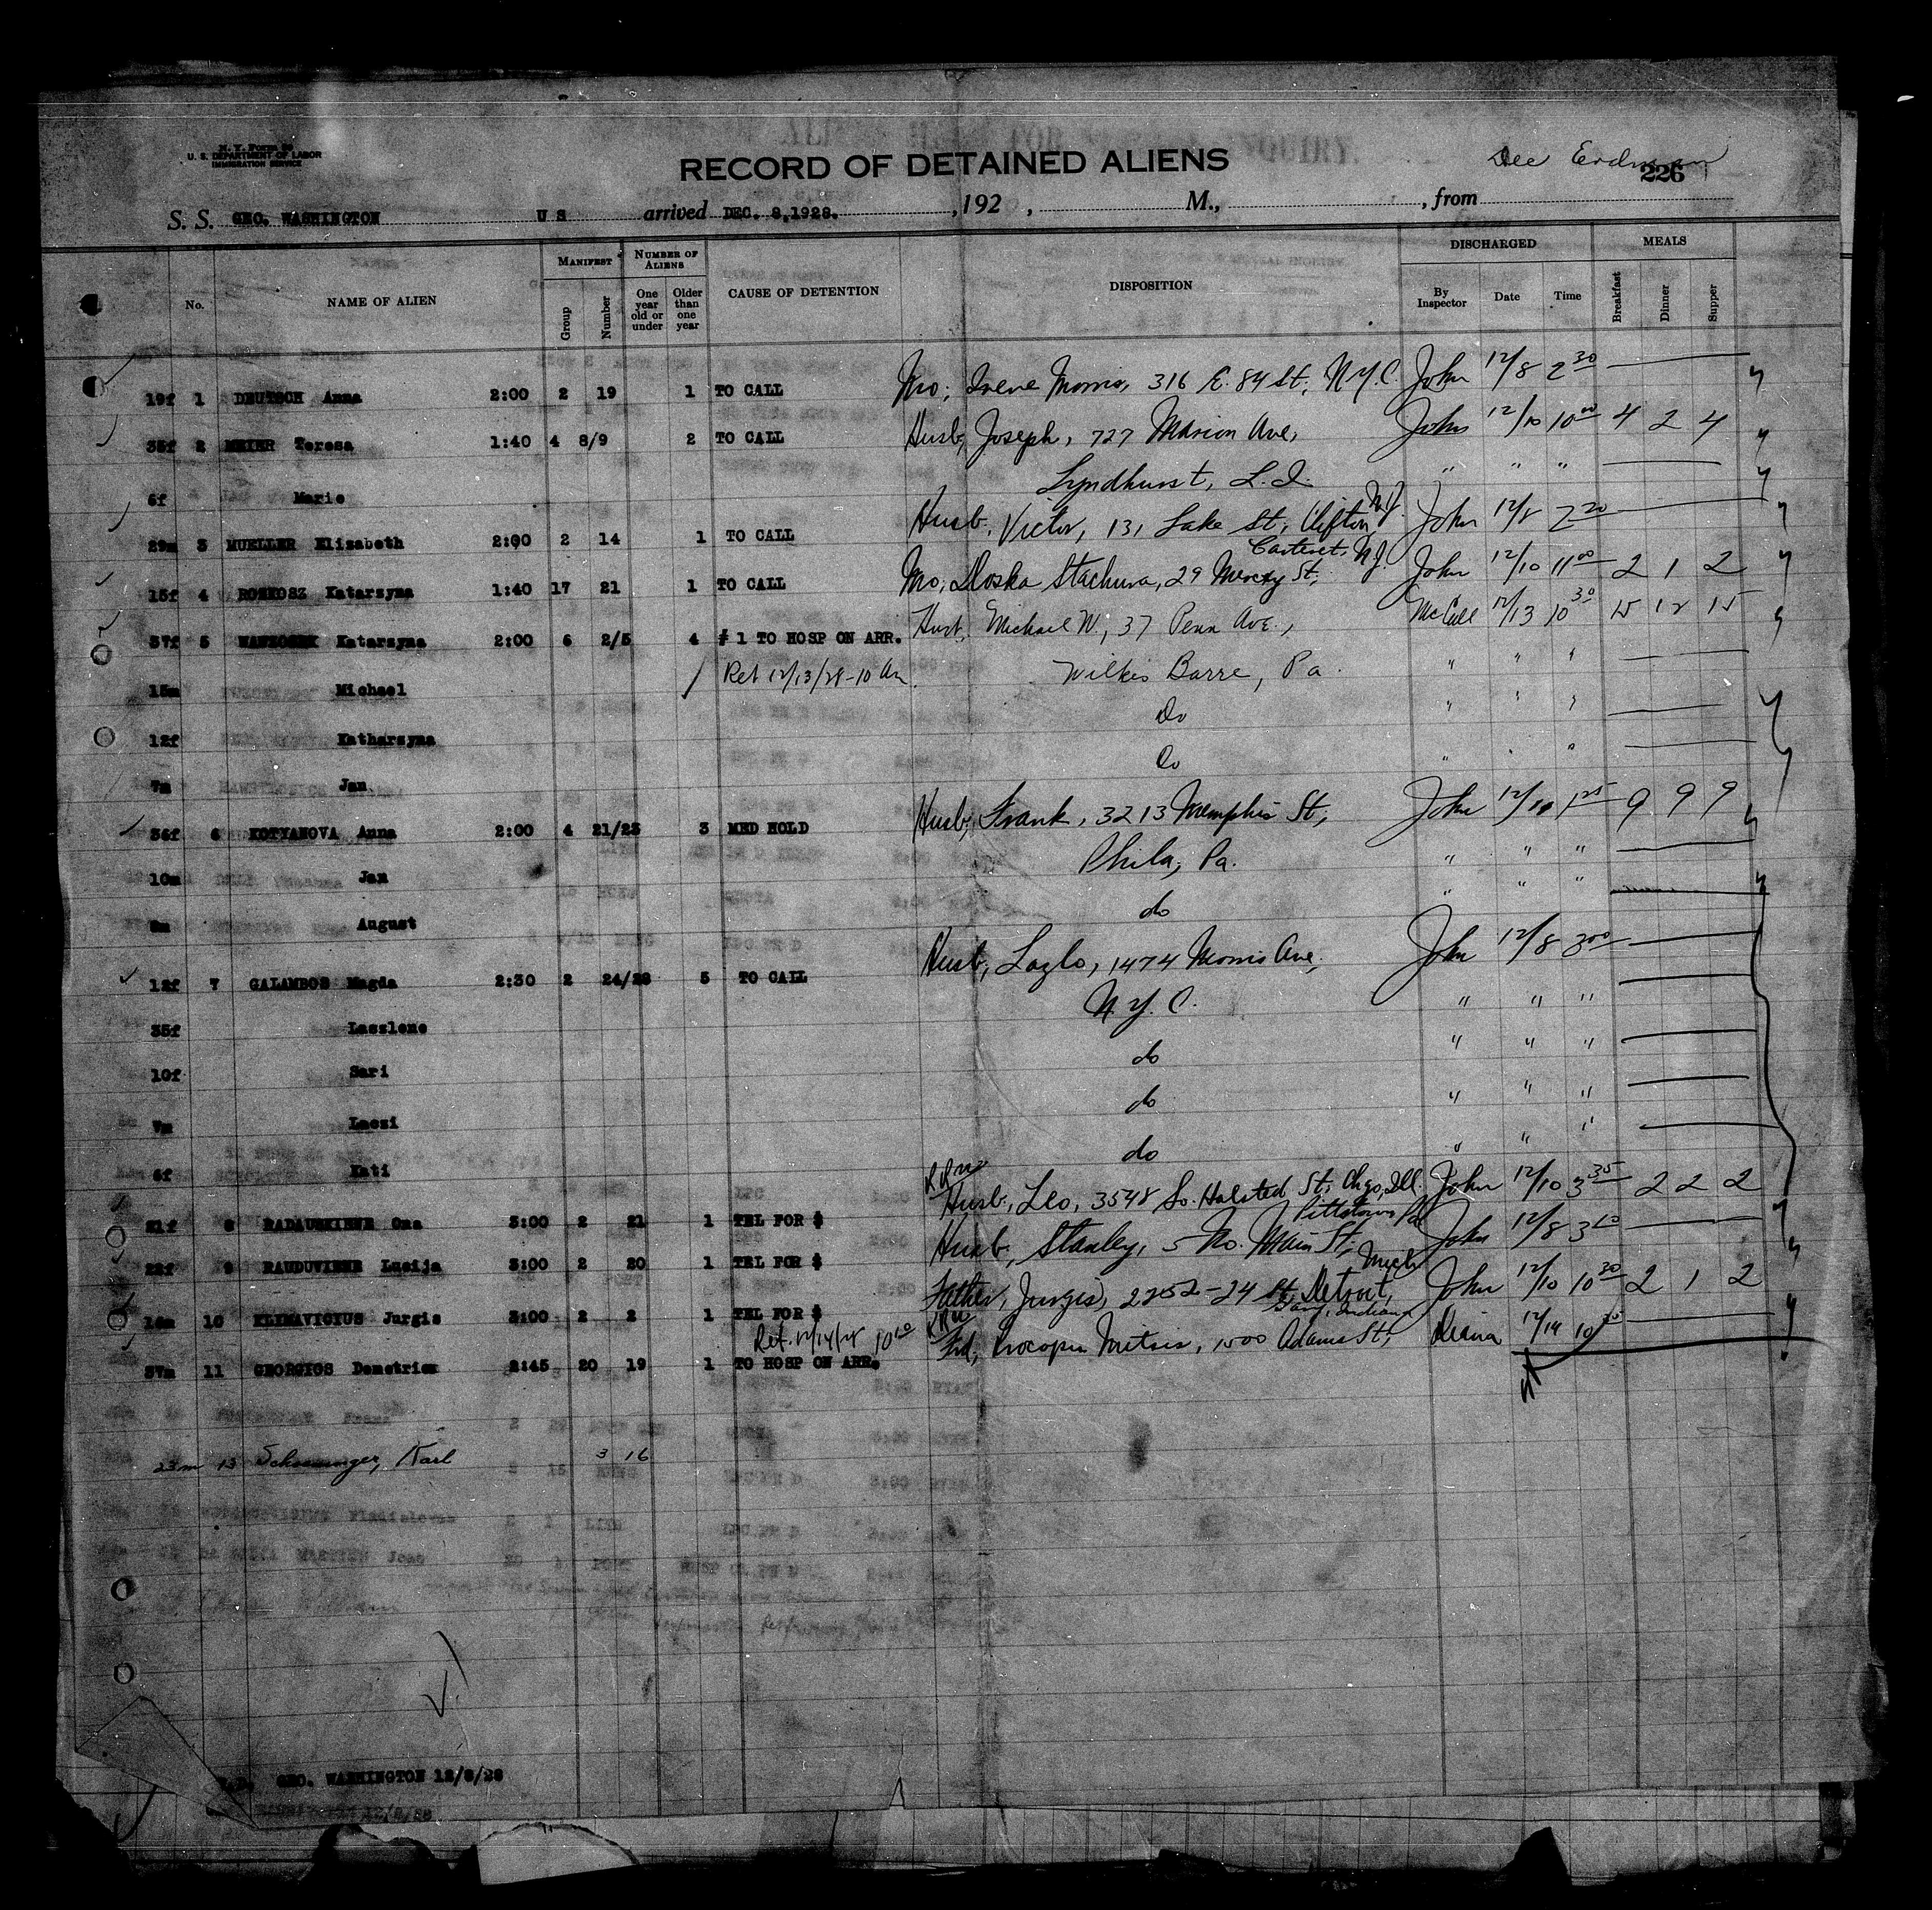 N. Y. Form 99
U. S. DEPARTMENT OF LABOR
IMMIGRATION SERVICE
RECORD OF DETAINED ALIENS
226
S. S. GEO. WASHINGTON U S arrived DEC. 8,1928. ,192 , M., , from
No. NAME OF ALIEN MANIFEST Group Number NUMBER OF ALIENS One year old or under Older than one year CAUSE OF DETENTION DISPOSITION DISCHARGED By Inspector Date Time MEALS Breakfast Dinner Supper
19f 1 DEUTSCH Anna 2:00 2 19 1 TO CALL Mo; Irene Morris, 316 E. 84 St, N.Y.C. John 12/8 2 30
35f 2 MEIER Teresa 1:40 4 8/9 2 TO CALL Husb, Joseph, 727 Marion Ave, John 12/10 10 00 4 2 4
6f Marie Lyndhurst, L.I. " " "
29m 3 MUELLER Elizabeth 2:00 2 14 1 TO CALL Husb. Victor, 131 Lake St, Clifton N.J. John 12/8 2 20
15f 4 ROSKOSZ Katarzyna 1:40 17 21 1 TO CALL Mo; Stachura, 29 St, Carteret, N.J. John 12/10 11 00 2 1 2
37f 5 Katarzyna 2:00 6 2/5 4 # 1 TO HOSP ON ARR. Husb, Michael W, 37 Penn Ave., McCall 12/13 10 30 15 12 15
15m Michael Ret 12/13/28-10 Am Wilkes Barre, Pa. " " "
12f Katharzyna Do " " "
7m Jan Do " " "
36f 6 KOTYANOVA Anna 2:00 4 21/23 3 MED HOLD Husb, Frank, 3213 Memphis St, John 12/10 1 25 9 9 9
10m Jan Phila, Pa. " " "
August do " " "
12f 7 GALAMBOS Magda 2:30 2 24/28 5 TO CALL Husb, Lazlo, 1474 Morris Ave, John 12/8 3 00
35f Laszlone N.Y.C. " " "
10f Sari do " " "
7m Laczi do " " "
6f Kati do " " "
21f 8 RADAUSKIENE Ona 3:00 2 21 1 TEL FOR $ Husb, Leo, 3548 So. Halsted St, Chgo, Ill. John 12/10 3 35 2 2 2
22f 9 RAUDUVIENE Lucija 3:00 2 20 1 TEL FOR $ Husb, Stanley, 5 No. Main St, Pittstown Pa John 12/8 3 10
16m 10 KLIMAVICIUS Jurgis 3:00 2 2 1 TEL FOR $ Father, Jurgis, 2252-24 St, Detroit, Mich John 12/10 10 30 2 1 2
Ret. 12/14/28 10 10
37m 11 GEORGIOS Demetrios 2:45 20 19 1 TO HOSP ON ARR. Frd, Procopis Mitsis, 1500 Adams St, Gary, Indiana 12/14 10 35
23m 13 Karl 3 16
GEO. WASHINGTON 12/8/28